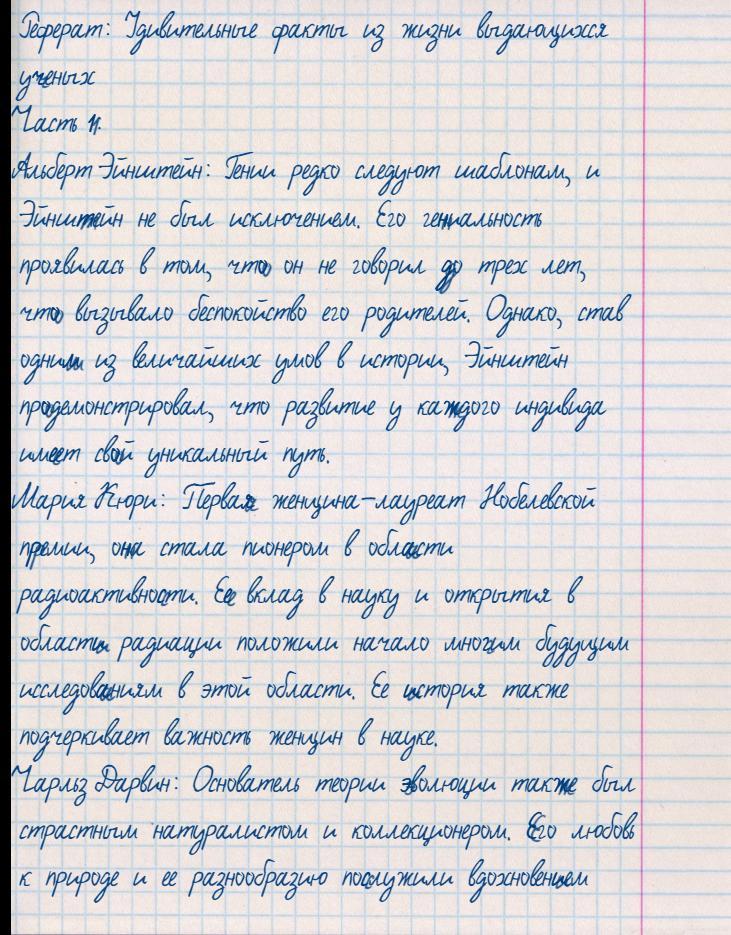 Реферат: Удивительные факты из жизни выдающихся
ученых
Часть 1.
Альберт Эйнштейн: Гении редко следуют шаблонам, и
Эйнштейн не был исключением. Его гениальность
проявилась в том, что он не говорил до трех лет,
что вызывало беспокойство его родителей. Однако, став
одним из величайших умов в истории, Эйнштейн
продемонстрировал, что развитие у каждого индивида
имеет свой уникальный путь.
Мария Кюри: Первая женщина-лауреат Нобелевской
премии, она стала пионером в области
радиоактивности. Ее вклад в науку и открытия в
области радиации положили начало многим будущим
исследованиям в этой области. Ее история также
подчеркивает важность женщин в науке.
Чарльз Дарвин: Основатель теории эволюции также был
страстным натуралистом и коллекционером. Его любовь
к природе и ее разнообразию послужили вдохновением